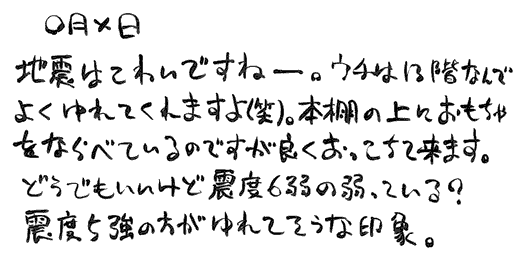 〇月×日
地震はこわいですねー。ウチは13階なんで
よくゆれてくれますよ(笑)。本棚の上におもちゃ
をならべているのですが良くおっこちて来ます。
どうでもいいけど震度6弱の弱っている?
震度5強の方がゆれてそうな印象。